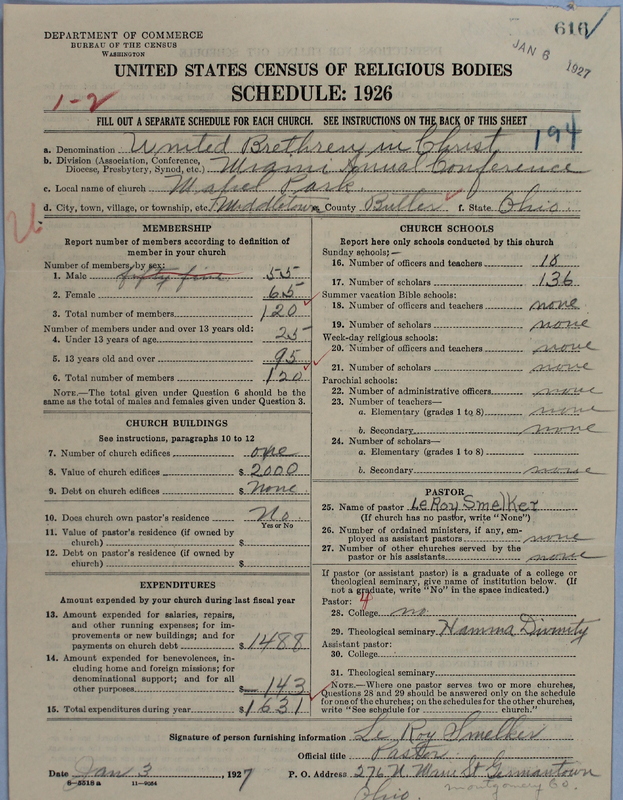 616
DEPARTMENT OF COMMERCE
BUREAU OF THE CENSUS
WASHINGTON
JAN 6 1927
UNITED STATES CENSUS OF RELIGIOUS BODIES
SCHEDULE: 1926
1-2
FILL OUT A SEPARATE SCHEDULE FOR EACH CHURCH. SEE INSTRUCTIONS ON THE BACK OF THIS SHEET
194
a. Denomination United Brethren in Christ
b. Division (Association, Conference, Diocese, Presbytery, Synod, etc.) Miami Annual Conference
c. Local name of church Park
d. City, town, village, or township, etc. Middletown e. County Butler f. State Ohio
MEMBERSHIP
Report number of members according to definition of
member in your church
Number of members by sex:
1. Male fifty five 55
2. Female 65
3. Total number of members 120
Number of members under and over 13 years old:
4. Under 13 years of age 25
5. 13 years old and over 95
6. Total number of members 120
NOTE.—The total given under Question 6 should be
same as the total of males and females given under Question 3.
CHURCH BUILDINGS
See instructions, paragraphs 10 to 12
7. Number of church edifices one
8. Value of church edifices $ 2000
9. Debt on church edifices $ None
10. Does church own pastor's residence No
Yes or No
11. Value of pastor's residence (if owned by
church) $
12. Debt on pastor's residence (if owned by
church) $
EXPENDITURES
Amount expended by your church during last fiscal year
13. Amount expended for salaries, repairs,
and other running expenses; for im-
provements or new buildings; and for
payments on church debt $ 1488
14. Amount expended for benevolences, in-
cluding home and foreign missions; for
denominational support; and for all
other purposes $ 143
15. Total expenditures during year $ 1631
CHURCH SCHOOLS
Report here only schools conducted by this church
Sunday schools:—
16. Number of officers and teachers 18
17. Number of scholars 136
Summer vacation Bible schools:
18. Number of officers and teachers none
19. Number of scholars none
Week-day religious schools:
20. Number of officers and teachers none
21. Number of scholars none
Parochial schools:
22. Number of administrative officers none
23. Number of teachers—
a. Elementary (grades 1 to 8) none
b. Secondary none
24. Number of scholars—
a. Elementary (grades 1 to 8)
b. Secondary none
PASTOR
25. Name of pastor LeRoy Smelker
(If church has no pastor, write "None")
26. Number of ordained ministers, if any, em-
ployed as assistant pastors none
27. Number of other churches served by the
pastor or his assistants none
If pastor (or assistant pastor) is a graduate of a college or
theological seminary, give name of institution below. (If
not a graduate, write "No" in the space indicated.)
Pastor: 4
28. College no
29. Theological seminary Hamma Divinity
Assistant pastor:
30. College
31. Theological seminary
NOTE.—Where one pastor serves two or more churches,
Questions 28 and 29 should be answered only on the schedule
for one of the churches; on the schedules for the other churches,
write "See schedule for church."
Signature of person furnishing information Le Roy Smelker
Official title Pastor
Date Jan 3, 1927 P. O. Address 276 N. Main St Germantown
Ohio. Montgomery Co.
6-5518 a 11-9084